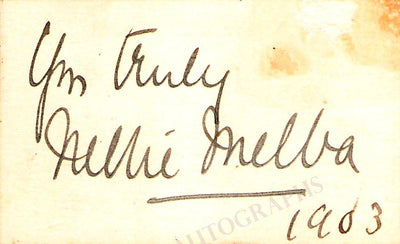 Yrs truly
Nellie Melba
1903
AUTOGRAPHS